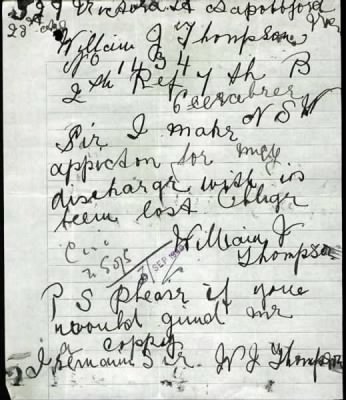 Victoria St Abbotsford
William J Thompson
No 1434
2th Ref 7th B
N S W
Sir I make
appicton for mey
dischargr with is
beem lost Obligr
William J
Thompson
SEP
P S Pleasr if youe
would gind me
a coppy
I remain Sir. W J Thompson